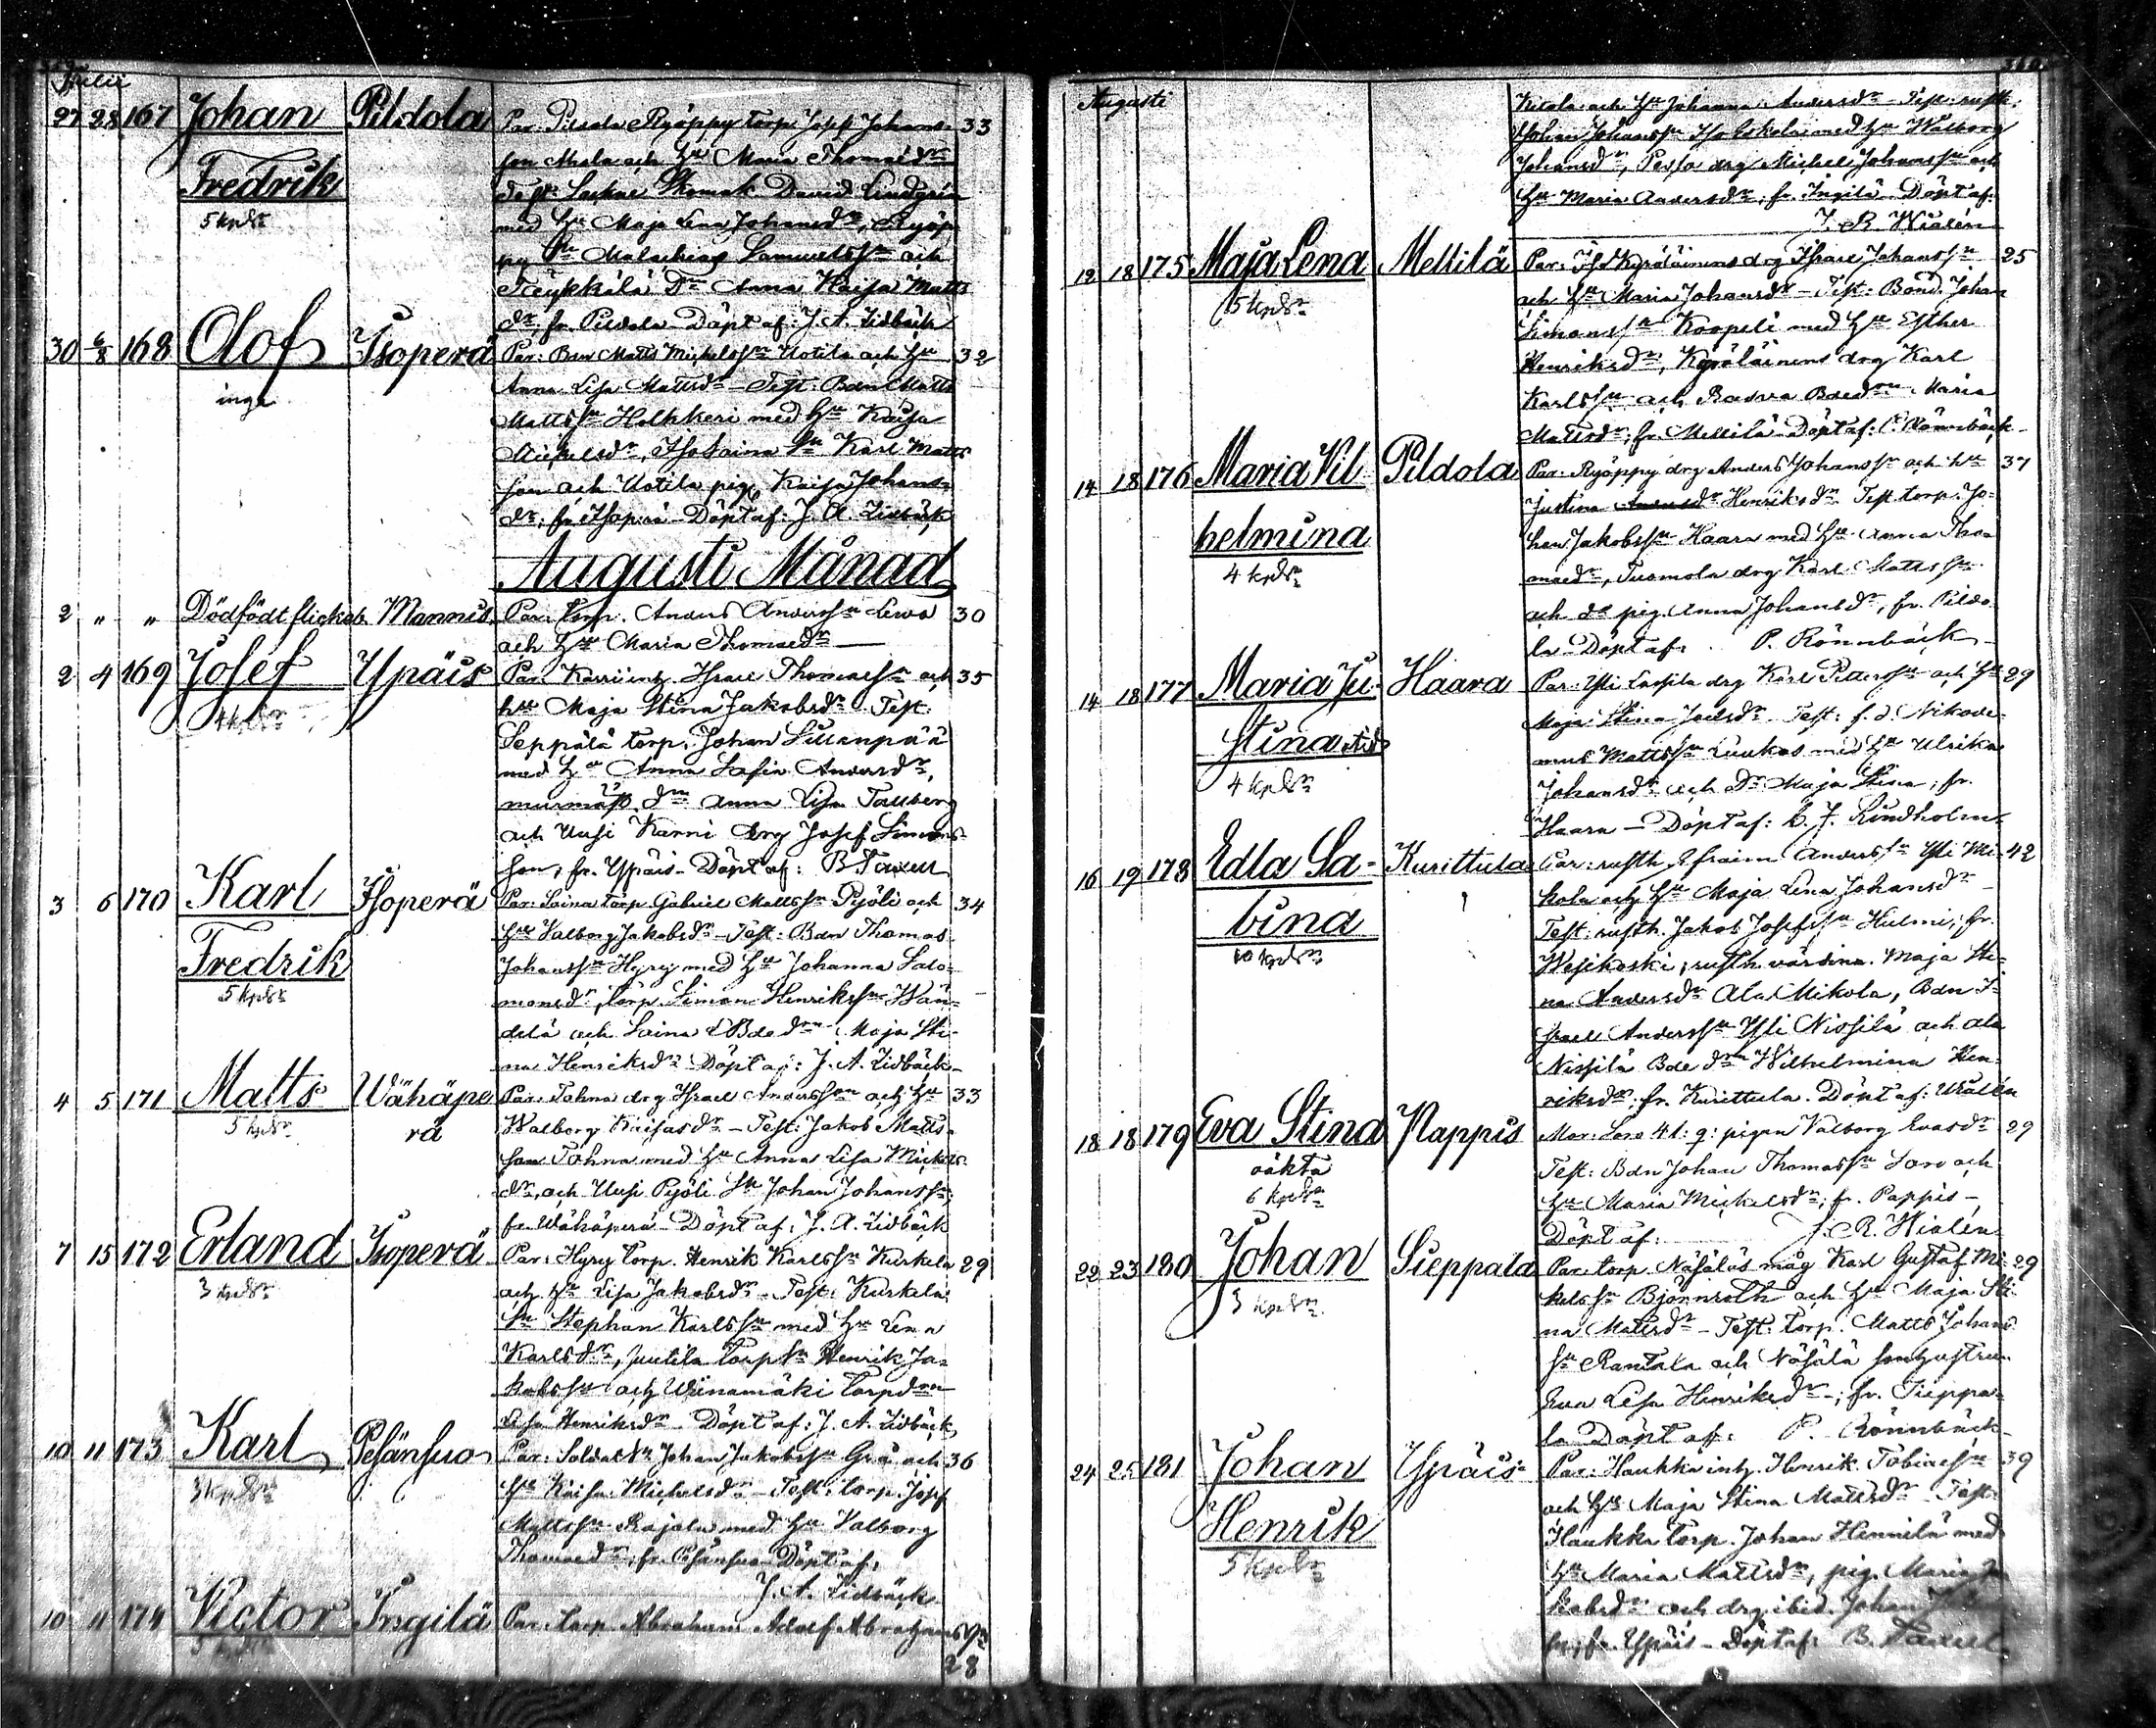 Julii
27 28 167 Johan Pildola Par. Pildola Ryöppy torp. Josef Johans- 33
son och Hu Maria Thomædr
Fredrik Test. Skomak. David Lindgrén
5 kpdr med Hu Maja Lena Johansdr, Ryöp-
py Sn Malachias Samuelsson och
Dr Anna Kaisa Matts
dr, fr. Pildola Döpt af: J. A. Lidbäck
30 6/8 168 Olof Isoperä Par: Bdn Matts Michelsson Uotila och Hu 32
inga Anna Lisa Mattsdr – Test: Bdn Matts
Mattsson med Hu Kaisa
Michelsdr, Sn Karl Matts
son och Uotila pig. Kaisa Johans-
dr, fr. Isoperä – Döpt af: J. A. Lidbäck
Augusti Månad
2 " " Dödfödt flickeb. Mannis Par. torp. Anders Andersson Lewo 30
och Hu Maria Thomædr
2 4 169 Josef Ypäis Par. Karri inh. Israel Thomasson och 35
4 kpdr hu Maja Stina Jakobsdr Test.
Seppälä torp. Johan Sillanpää
med Hu Anna Sofia Andersdr,
dru Anna Lisa Tallberg
och Uusi Karri drg Josef Simons-
son, fr. Ypäis – Döpt af: B. Taxell
3 6 170 Karl Isoperä Par: Laina torp. Gabriel Mattsson Pyöli och 34
Hu Valborg Jakobsdr – Test: Bdn Thomas
Fredrik Johansson Hyry med Hu Johanna Salo-
5 kpdr monsdr, torp. Simon Henriksson Wän-
delä och Laina Bdedrn Maja Sti-
na Henriksdr Döpt af: J. A. Lidbäck
4 5 171 Matts Wähäpe Par: Tohna drg Israel Andersson och Hu 33
5 kpdr rä Walborg Kaisasdr – Test: Jakob Matts-
son Tohna med Hu Anna Lisa Michels
dr, och Uusi Pyöli Sn Johan Johansson;
fr. Wähäperä – Döpt af: J. A. Lidbäck
7 15 172 Erland Isoperä Par: Hyry torp. Henrik Karlsson Kurkela 29
3 kpdr och Hu Lisa Jakobsdr – Test: Kurkela
Sn Stephan Karlsson med Hu Lena
Karlsdr, Juutila torp Sn Henrik Ja-
kobsson och Wäinämäki torpdrn
Lisa Henriksdr – Döpt af: J. A. Lidbäck
10 11 173 Karl Pesänsuo Par: Soldat Johan Jakobsson Grå och 36
3 kpdr Hu Kaisa Michelsdr – Test: torp. Josef
Mattsson Rajala med Hu Valborg
Thomædr; fr. Pesänsuo Döpt af:
J. A. Lidbäck
10 11 174 Victor Ingilä Par. torp. Abraham Adolf Abrahams
5 kpdr 28
Augusti
och Hu Johanna Andersdr – Test: rusth.
Johan Johansson med Hu Walborg
Johansdr, drg Michel Johansson och
Hu Maria Andersdr; fr. Ingilä – Döpt af:
J. R. Wialén
12 18 175 Maja Lena Mellilä Par: Kyröläinens drg Israel Johansson 25
5 kpdr och Hu Maria Johansdr – Test: Bond. Johan
Simonsson Koopeli med Hu Esther
Henriksdr, Kyröläinens drg Karl
Karlsson och Rasva Bdedrn Maria
Mattsdr; fr. Mellilä – Döpt af: P. Rönnbäck
14 18 176 Maria Vil- Pildola Par. Ryöppy drg Anders Johansson och hu 37
Justina Henriksdr Test. torp. Jo-
helmina han Jakobsson Haara med Hu Anna Tho-
4 kpdr mædr, Tuomola drg Karl Mattsson
och do pig. Anna Johansdr, fr. Pildo-
la – Döpt af: P. Rönnbäck
14 18 177 Maria Ju- Haara Par: Yli Lassila drg Karl Pettersson och Hu 29
Maja Stina Joelsdr Test: f.d. Nikode-
stina mus Mattsson Luukas med Hu Ulrika
4 kpdr Johansdr och Dr Maja Stina; fr.
Haara – Döpt af: Lindholm
16 19 178 Edla Sa- Kurittula Par: rusth. Efraim Andersson Yli Mi- 42
kola och Hu Maja Lena Johansdr –
bina Test: rusth. Jakob Josefsson Hulmi; fr.
10 kpdr Wesikoski, rusth. värdina Maja Sti-
na Andersdr Ala Mikola, Bdn I-
srael Andersson Yli Nissilä och Ala
Nissilä Bdedrn Wilhelmina Hen-
riksdr; fr. Kurittula. Döpt af: Wialén
18 18 179 Eva Stina Pappis Mor: 41: g: pigan Valborg Evasdr 29
oäkta Test: Bdn Johan Thomasson och
6 kpdr Hu Maria Michelsdr; fr. Pappis –
Döpt af: J. R. Wialén
22 23 180 Johan Sieppala Par. torp. Näsäläs måg Karl Gustaf Mi- 29
3 kpdr kelsson Björnroth och Hu Maja Sti-
na Mattsdr – Test: torp. Matts Johans-
son Rantala och Näsälä sonhustrun
Eva Lisa Henriksdr –; fr. Sieppa-
la – Döpt af: P. Rönnbäck
24 25 181 Johan Ypäis Par: Haukka inh. Henrik Tobiasson 39
och Hu Maja Stina Mattsdr – Test:
Henrik Haukka torp. Johan Hennilä med
5 kpdr Hu Maria Mattsdr, pig. Maria Ja-
kobsdr och drg ibid. Johan
fr. Ypäis – Döpt af: B. Taxell